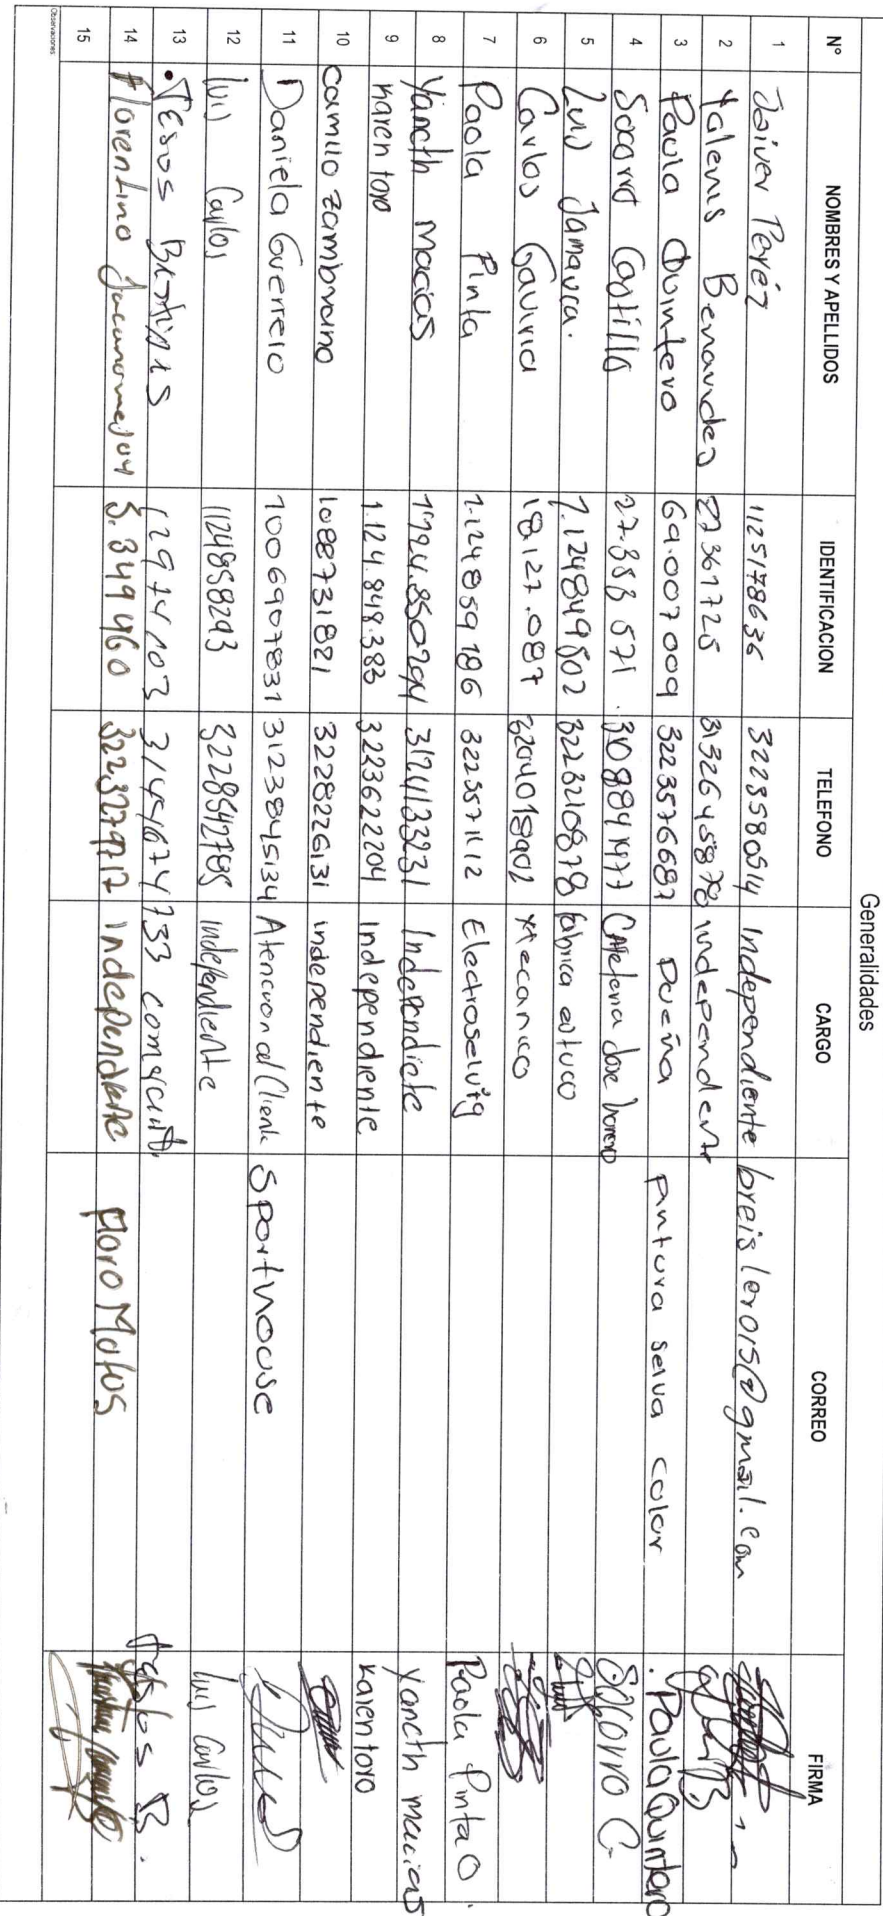 Generalidades
N° NOMBRES Y APELLIDOS IDENTIFICACION TELEFONO CARGO CORREO FIRMA
1 Joiver Peréz 1125178636 3223580914 Independiente breisler015@gmail.com
2 Yalenis Benavides 27361725 3132645878 independiente
3 Paola Quintero 69.007009 3223576687 Dueña pintura selva color Paola Quintero
4 Socorro Castillo 27.353 571 3108841477 Cafeteria Jose Socorro C
5 Luis Jamauca. 1.124849502 3223210878 fabrica estuco
6 Carlos Gaviria 18.127.087 3204018902 Mecanico
7 Paola Pinta 1.124859186 3223571112 Paola Pinta O.
8 Yaneth Macias 1'124.850294 3124133231 Independiete Yaneth macias
9 Karen toro 1.124.848.383 3223622204 Independiente Karen toro
10 camilo zambrano 1088731821 3228226131 independiente
11 Daniela Guerrero 1006907831 3123845134 Atencion al Cliente Sporthouse
12 luis Carlos 1124858293 3228542785 independiente luis Carlos
13 Jesos 12974103 B.
14 Florentino 5.349460 3223279717 Independiente Floro Motos
15
Observaciones